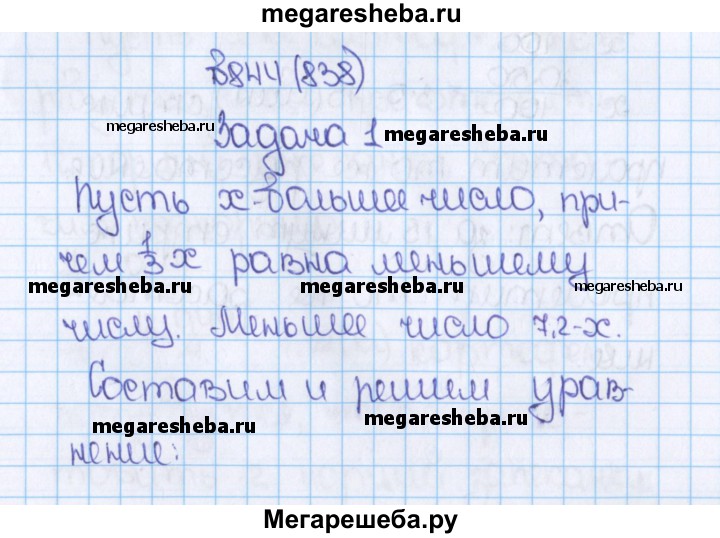 megaresheba.ru
В844 (838)
megaresheba.ru
Задача 1 megaresheba.ru
Пусть х-большее число, при-
чем 1/3 х равна меньшему
megaresheba.ru megaresheba.ru megaresheba.ru
числу. Меньшее число 7,2-х.
Составим и решим урав-
megaresheba.ru megaresheba.ru
нение:
Мегарешеба.ру